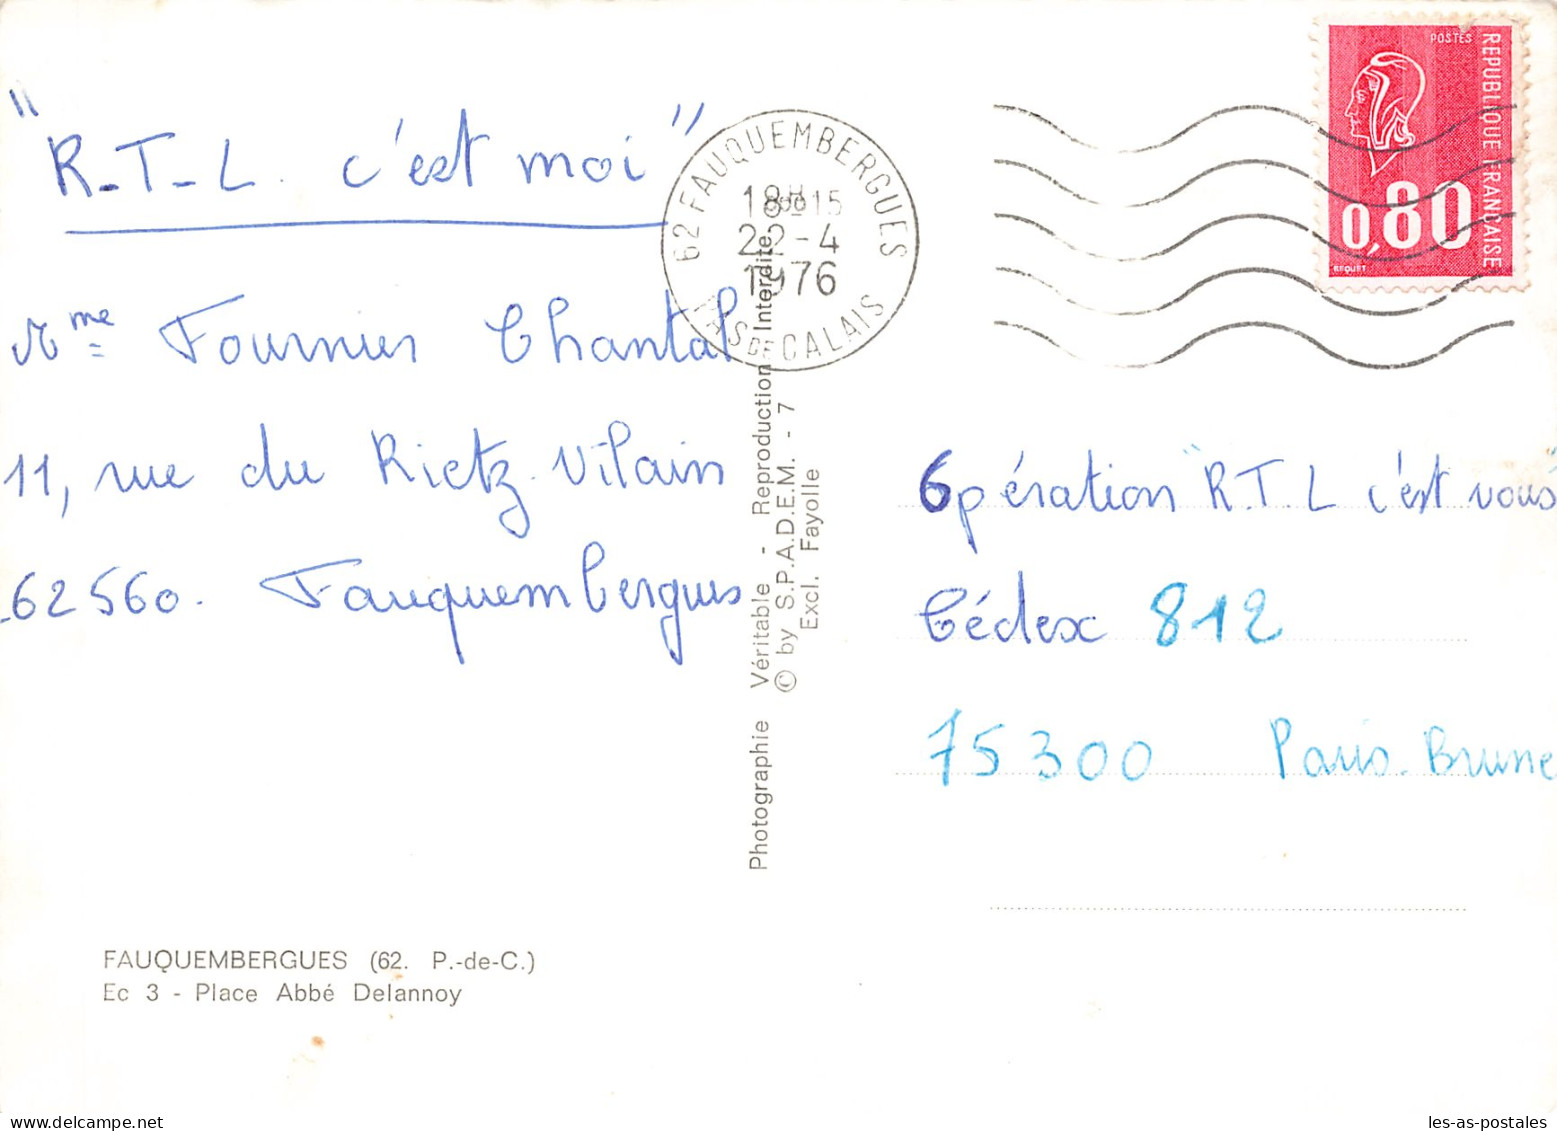 "R-T-L. c'est moi"
Mme Fournier Chantal
11, rue du Rietz-Vilain
62560. Fauquembergues
FAUQUEMBERGUES (62. P.-de-C.)
Ec 3 - Place Abbé Delannoy
Photographie Véritable - Reproduction Interdite
© by S.P.A.D.E.M. - 7
Excl. Fayolle
62 FAUQUEMBERGUES
22-4
1976
PAS DE CALAIS
POSTES
REPUBLIQUE FRANÇAISE
0,80
BEQUET
Opération "R.T.L c'est vous"
Cédex 812
75300 Paris-Brune
delcampe.net
les-as-postales